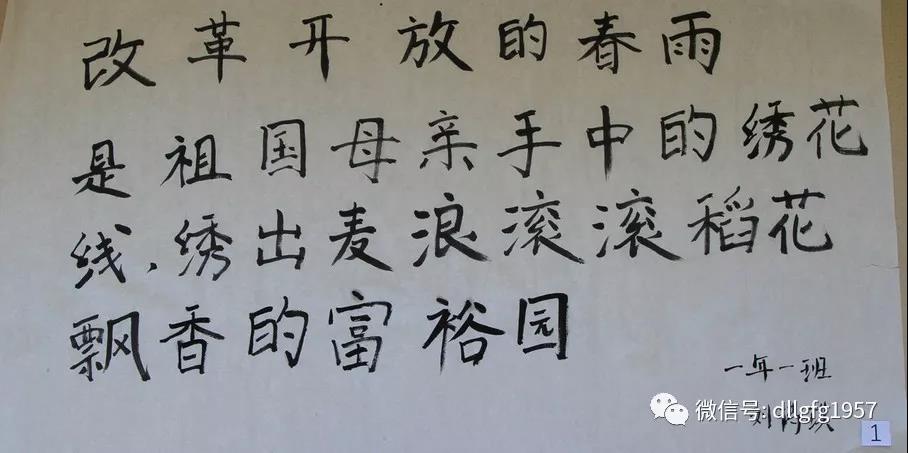 改革开放的春雨
是祖国母亲手中的绣花
线,绣出麦浪滚滚稻花
飘香的富裕园
一年一班
微信号: dllgfg1957
刘
1